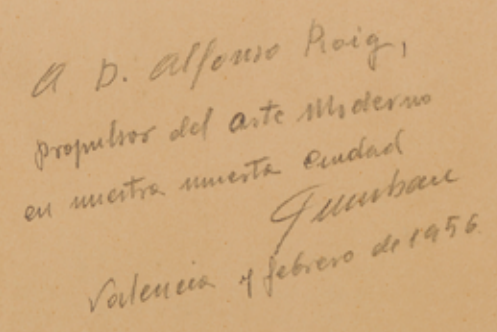 A D. Alfonso Roig,
propulsor del arte Moderno
en nuestra muerta ciudad
Valencia y febrero de 1956